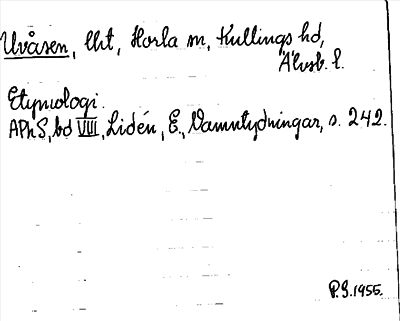 Uvåsen, lht, Horla sn, Kullings hd,
Älvsb. l.
Etymologi.
APhS, bd VIII, Lidén, E., Namntydningar, s. 242.
P.G. 1955.